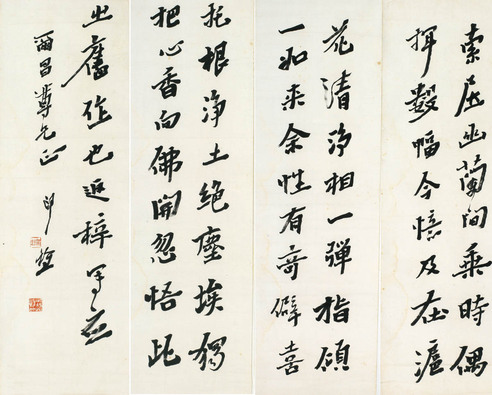 托根淨土絕塵埃獨
把心香向佛開忽悟此
花清淨相一彈指頃
一如来余性有奇僻喜
索居幽蘭間乘時偶
揮數幅今憶及在滬
之舊作也返梓写应
爾昌尊兄正